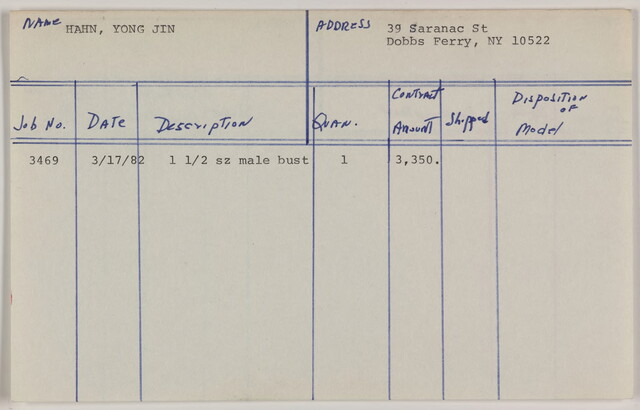 NAME HAHN, YONG JIN ADDRESS 39 Saranac St
Dobbs Ferry, NY 10522
Job No. DATE DESCRIPTION QUAN. CONTRACT AMOUNT Shipped DISPOSITION OF Model
3469 3/17/82 1 1/2 sz male bust 1 3,350.